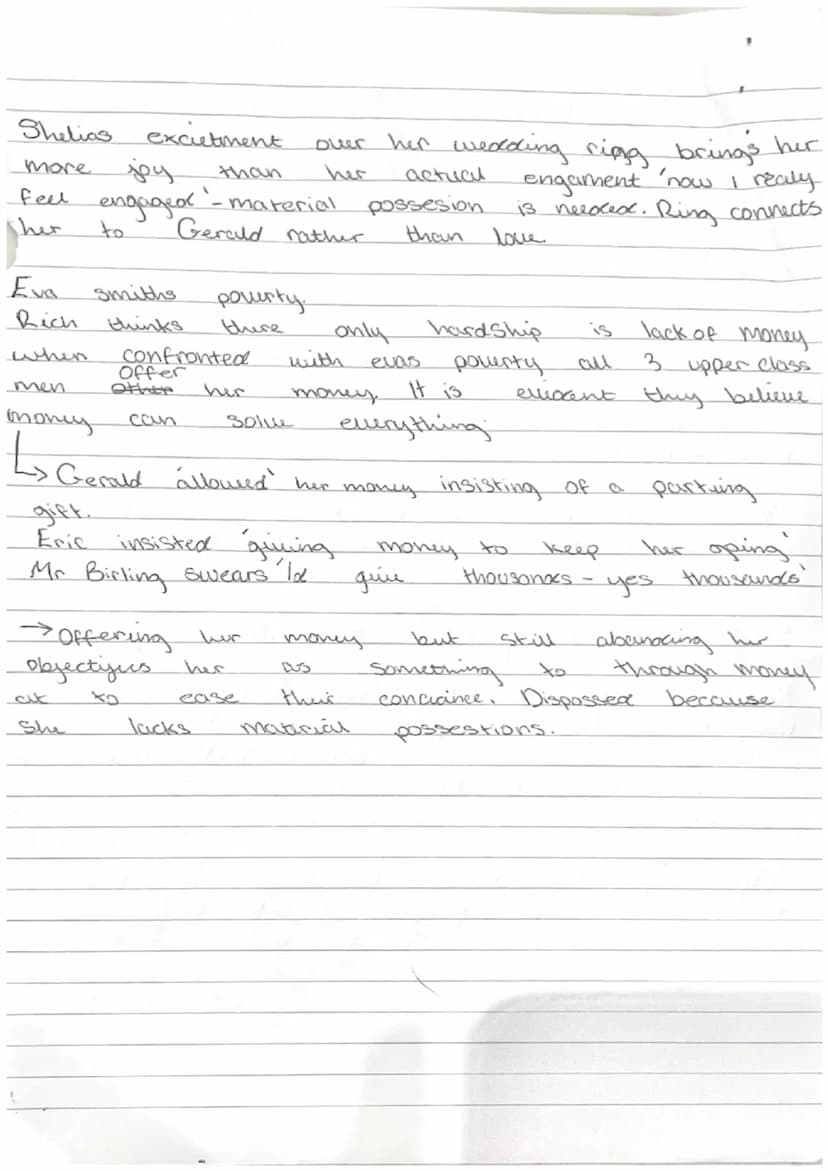 Shelias excietment over her wedding ring brings her
more joy than her actual engament 'now I realy
feel engaged' - material possesion is needed. Ring connects
her to Gerald rather than love
Eva smiths poverty.
Rich thinks there only hardship is lack of money
when confronted with evas poverty all 3 upper class
men offer her money. It is evident they believe
money can solve everything.
↳ Gerald 'allowed' her money insisting of a parting
gift.
Eric insisted 'giving money to keep her going'
Mr Birling swears 'Id give thousands - yes thousands'
→ Offering her money but still abandoing her
objectifies her as something to through money
at to ease their conciance. Dispossed because
she lacks material possestions.